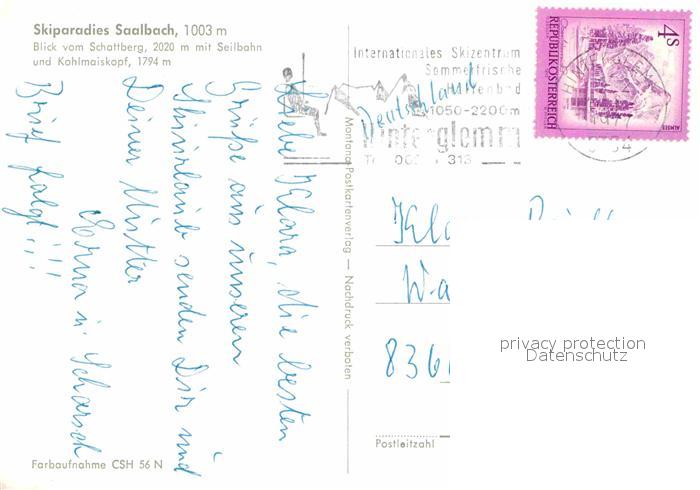 Skiparadies Saalbach, 1003 m
Blick vom Schattberg, 2020 m mit Seilbahn
und Kohlmaiskopf, 1794 m
Liebe Klara, die besten
Grüße aus unseren
senden Dir und
Deiner Mutter
Erna u.
Brief folgt!!!
Farbaufnahme CSH 56 N
Montana Postkartenverlag — Nachdruck verboten
Internationales Skizentrum
Sommerfrische
1050-2200m
Hinterglemm
313
Deutschland
4S
REPUBLIK ÖSTERREICH
ALMSEE
Kla
Wa
836
Postleitzahl
privacy protection
Datenschutz